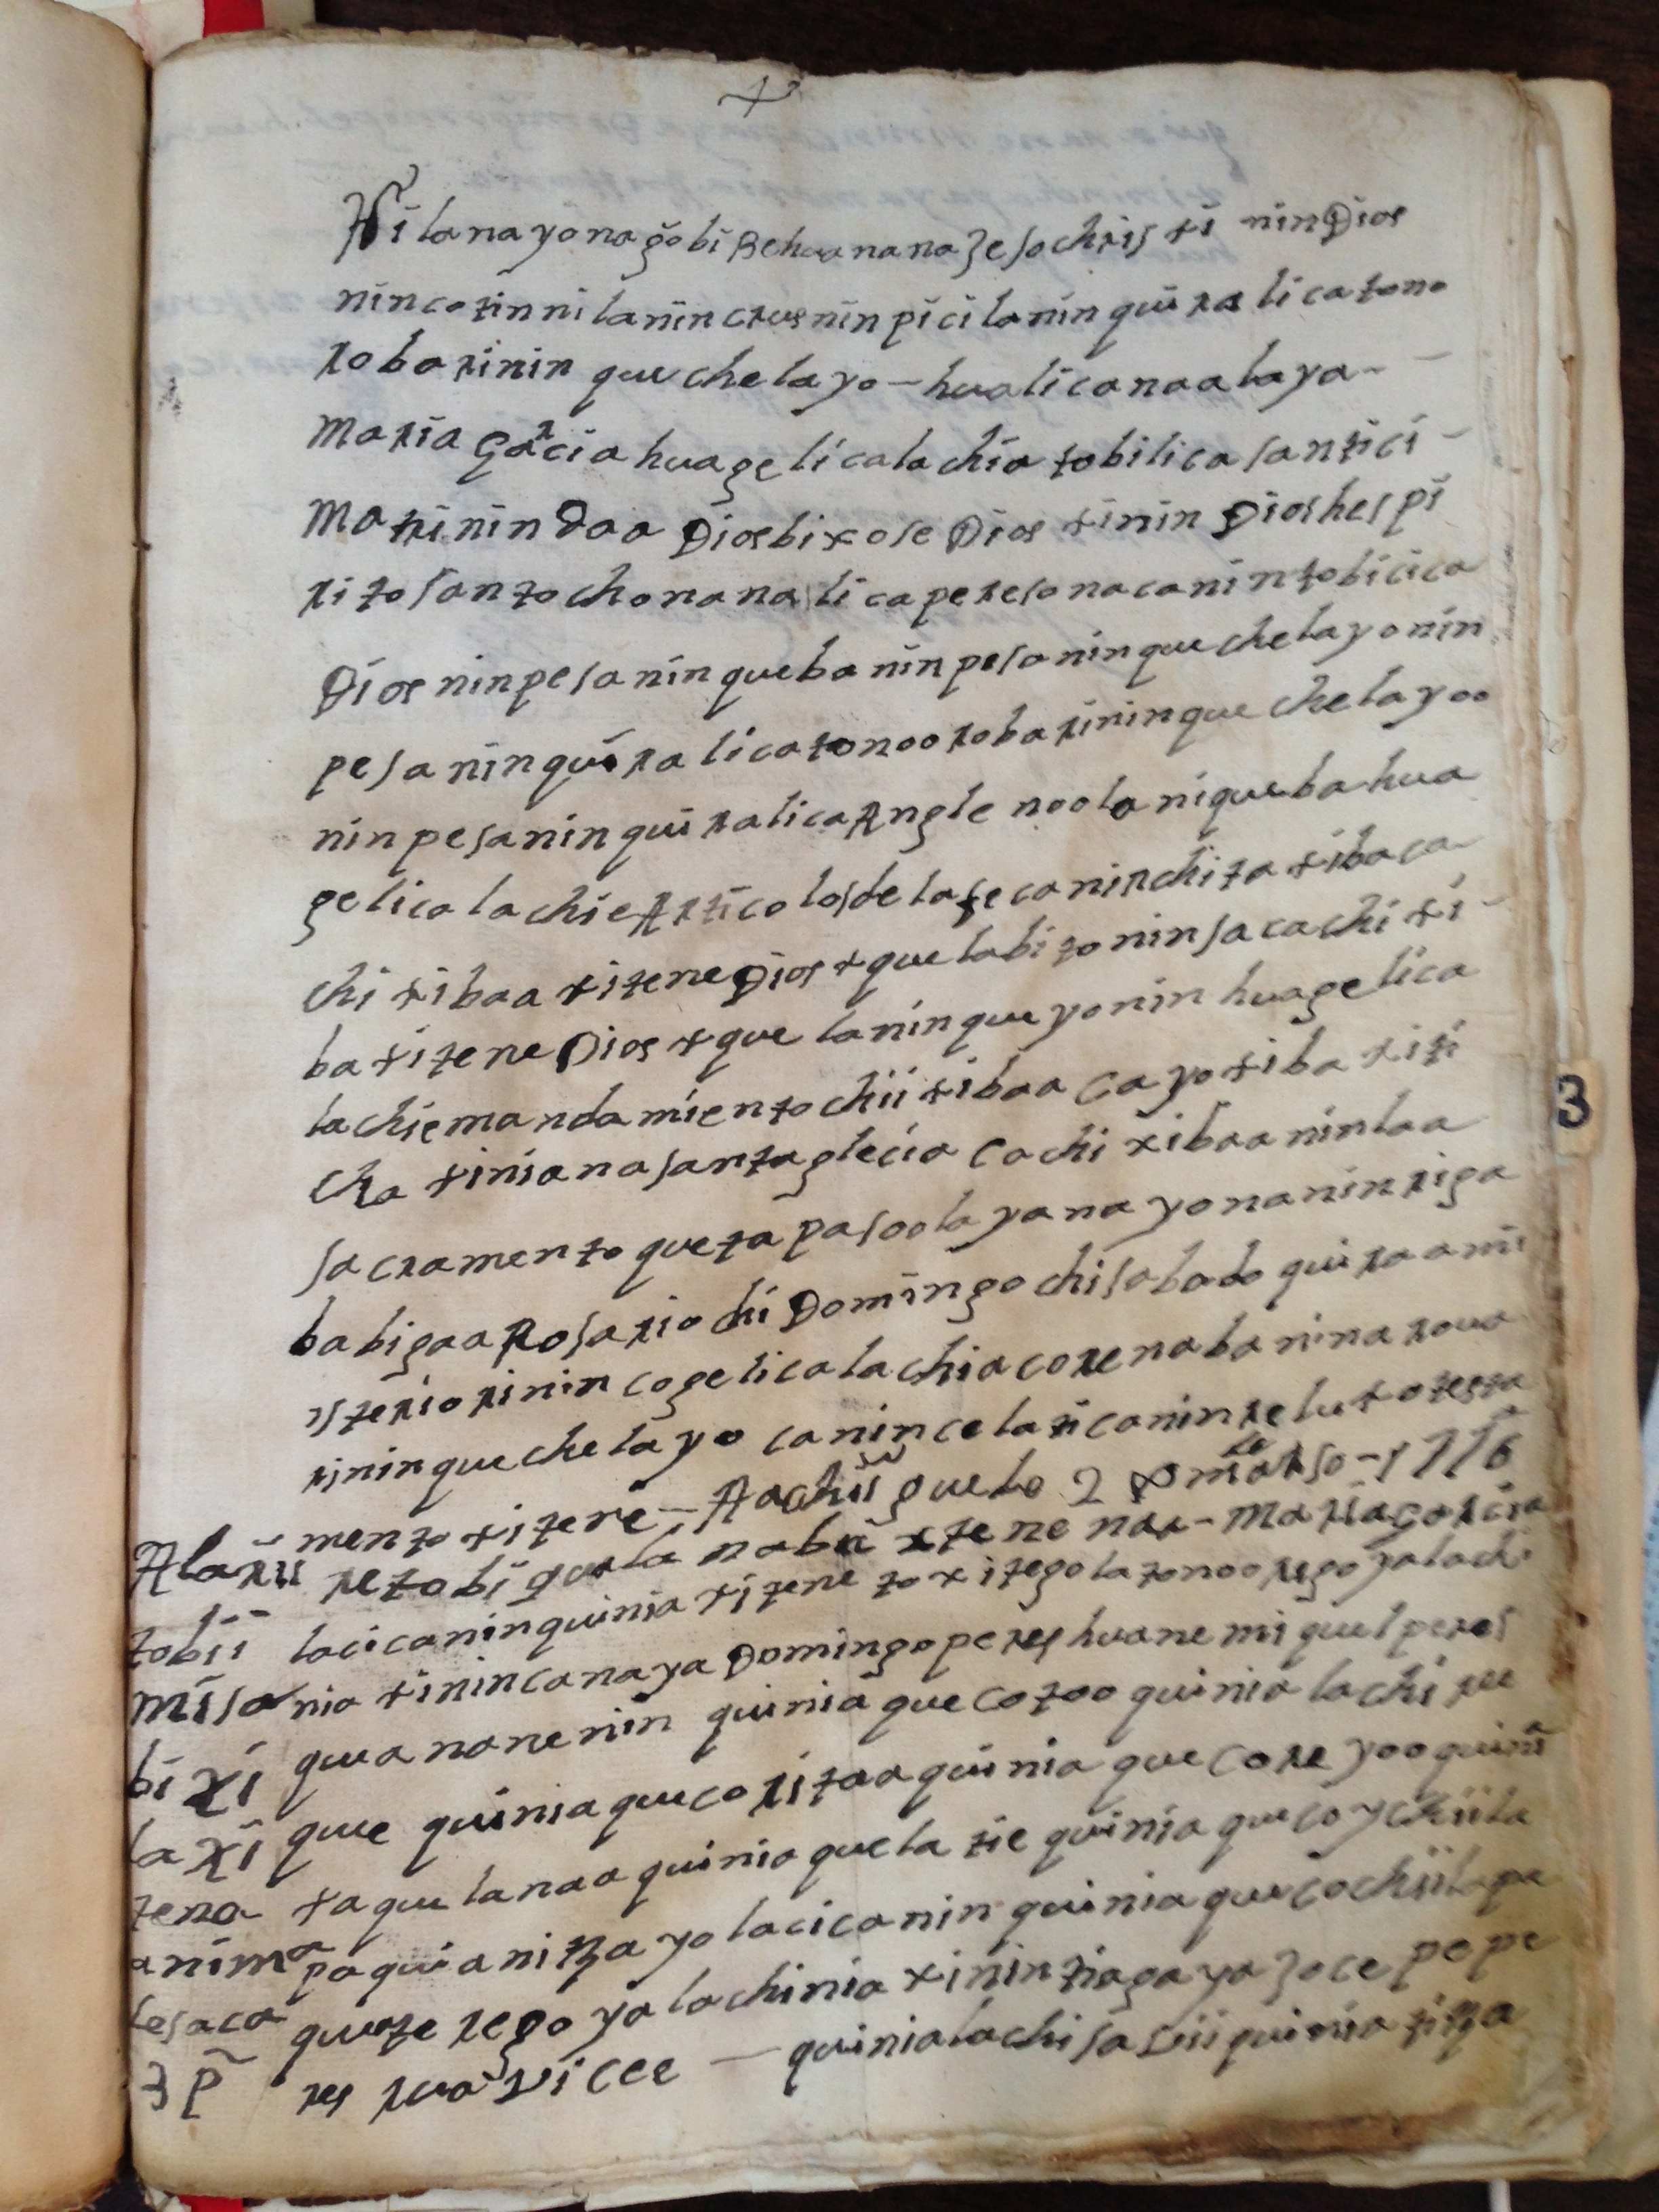 +
Ni lana yona gobi Behuanana Jesochristi nin Dios
nin cotinni lanin crus nin picila nin quiraa lica tono
robarinin quechelayo – hualica naa laya –
Maria Garcia huagelicalachia tobi lica santici –
ma trinindaa Dios bixose Dios xinin Dios hespi
rito santo chonana lica peresona canin tobicica
Dios nin pesa nin queba nin pesa nin quechelayo nin
pesa nin quira lica tonoo robarinin quechelayoo
nin pesa nin quiralica Angle noo laniqueba hua
gelicalachie Articolos de la fe canin chita xibaca
chi xibaa xitene Dios xquelabito nin sacachi xi
ba xitene Dios xquelanin queyo nin huagelica
lachie mandamiento chii xibaa cayo xiba xiti
cha xiniana santa glecia cachi xibaa nin laa
sacramento quetapa soo laya na yona nin riga
ba bigaa Rosario chi Domingo chi sabado quiraa mi
isterio rinin cogelicalachia corenaba nina roua
rinin quechelayo canin ce laticanin relu xotesta
mento xitene – Aachii gueto 2 de marso – 1716 a
Alarii retobi quela nabii xtene naa – Maria Garcia
tobii lacicanin quinia xitene toxitegola tonoo regoyalachi
misa nia xinincanaya Domingo peres huane miguel peres
bi xi quea nane nin quinia que cotoo quinia lachi rue
la xi que quinia que coritaa quinia que core yoo quinia
tena xaquelanaa quinia quela tie quinia que coychiila
anima paquianitza yo lacicanin quinia que cochiilape
lesaca quete regoyalachi nia xinin tiagaya Jose pe pe
3 p res rua vicee — quinia lachi sa vii quinia titza